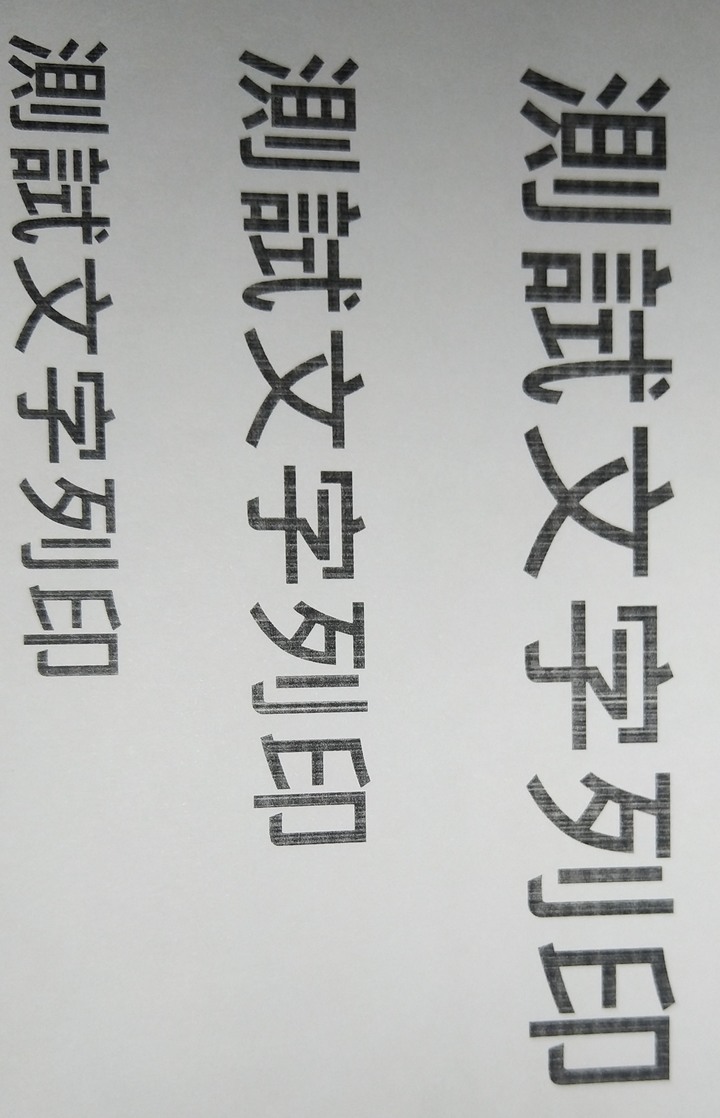 測試文字列印
測試文字列印
測試文字列印